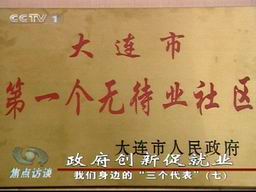 CCTV 1
大连市
第一个无待业社区
大连市人民政府
焦点访谈
政府创新促就业
我们身边的“三个代表”（七）